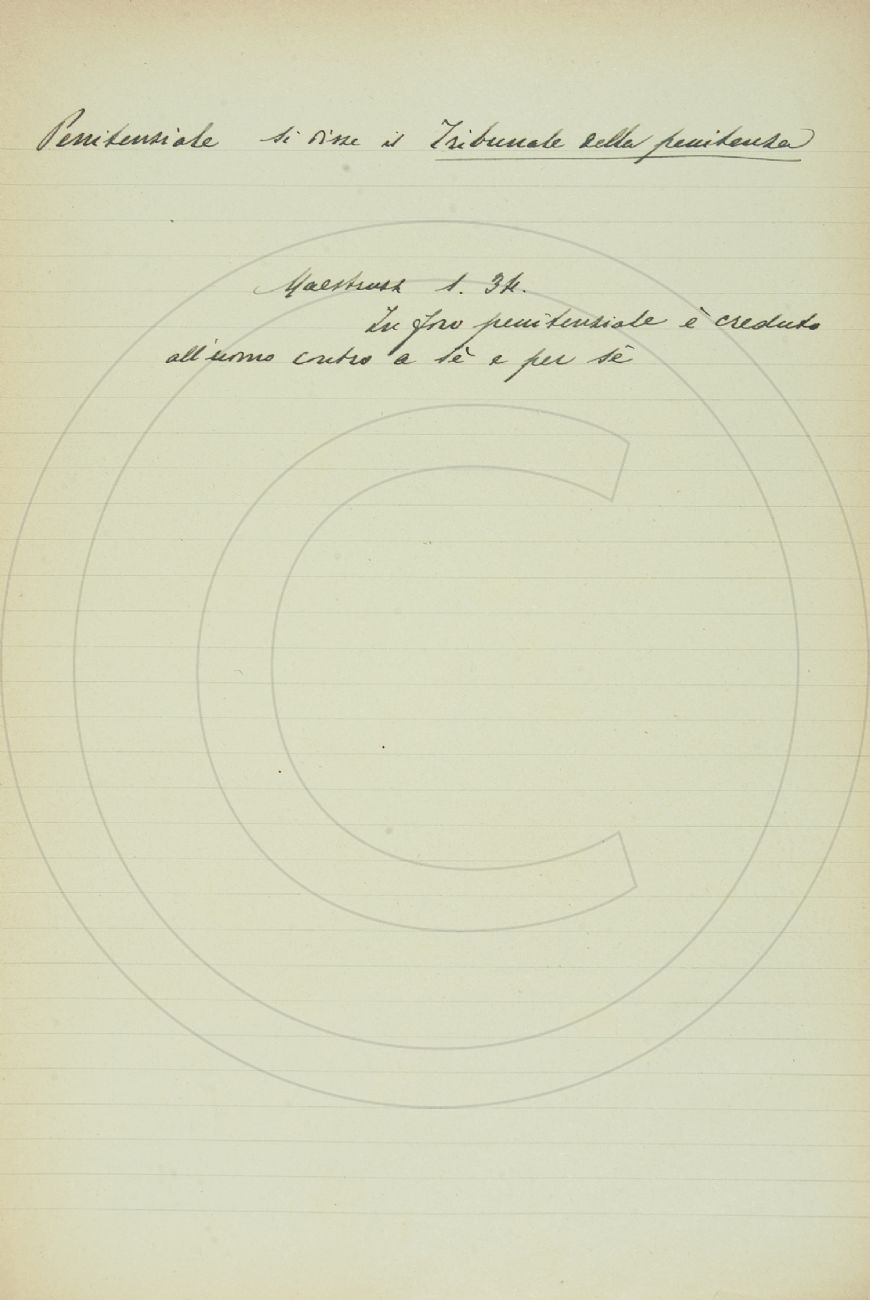 Penitenziale si disse il Tribunale della penitenza
Maestruzz 1. 34.
In foro penitenziale è creduto
all'uomo contro a sè e per sè